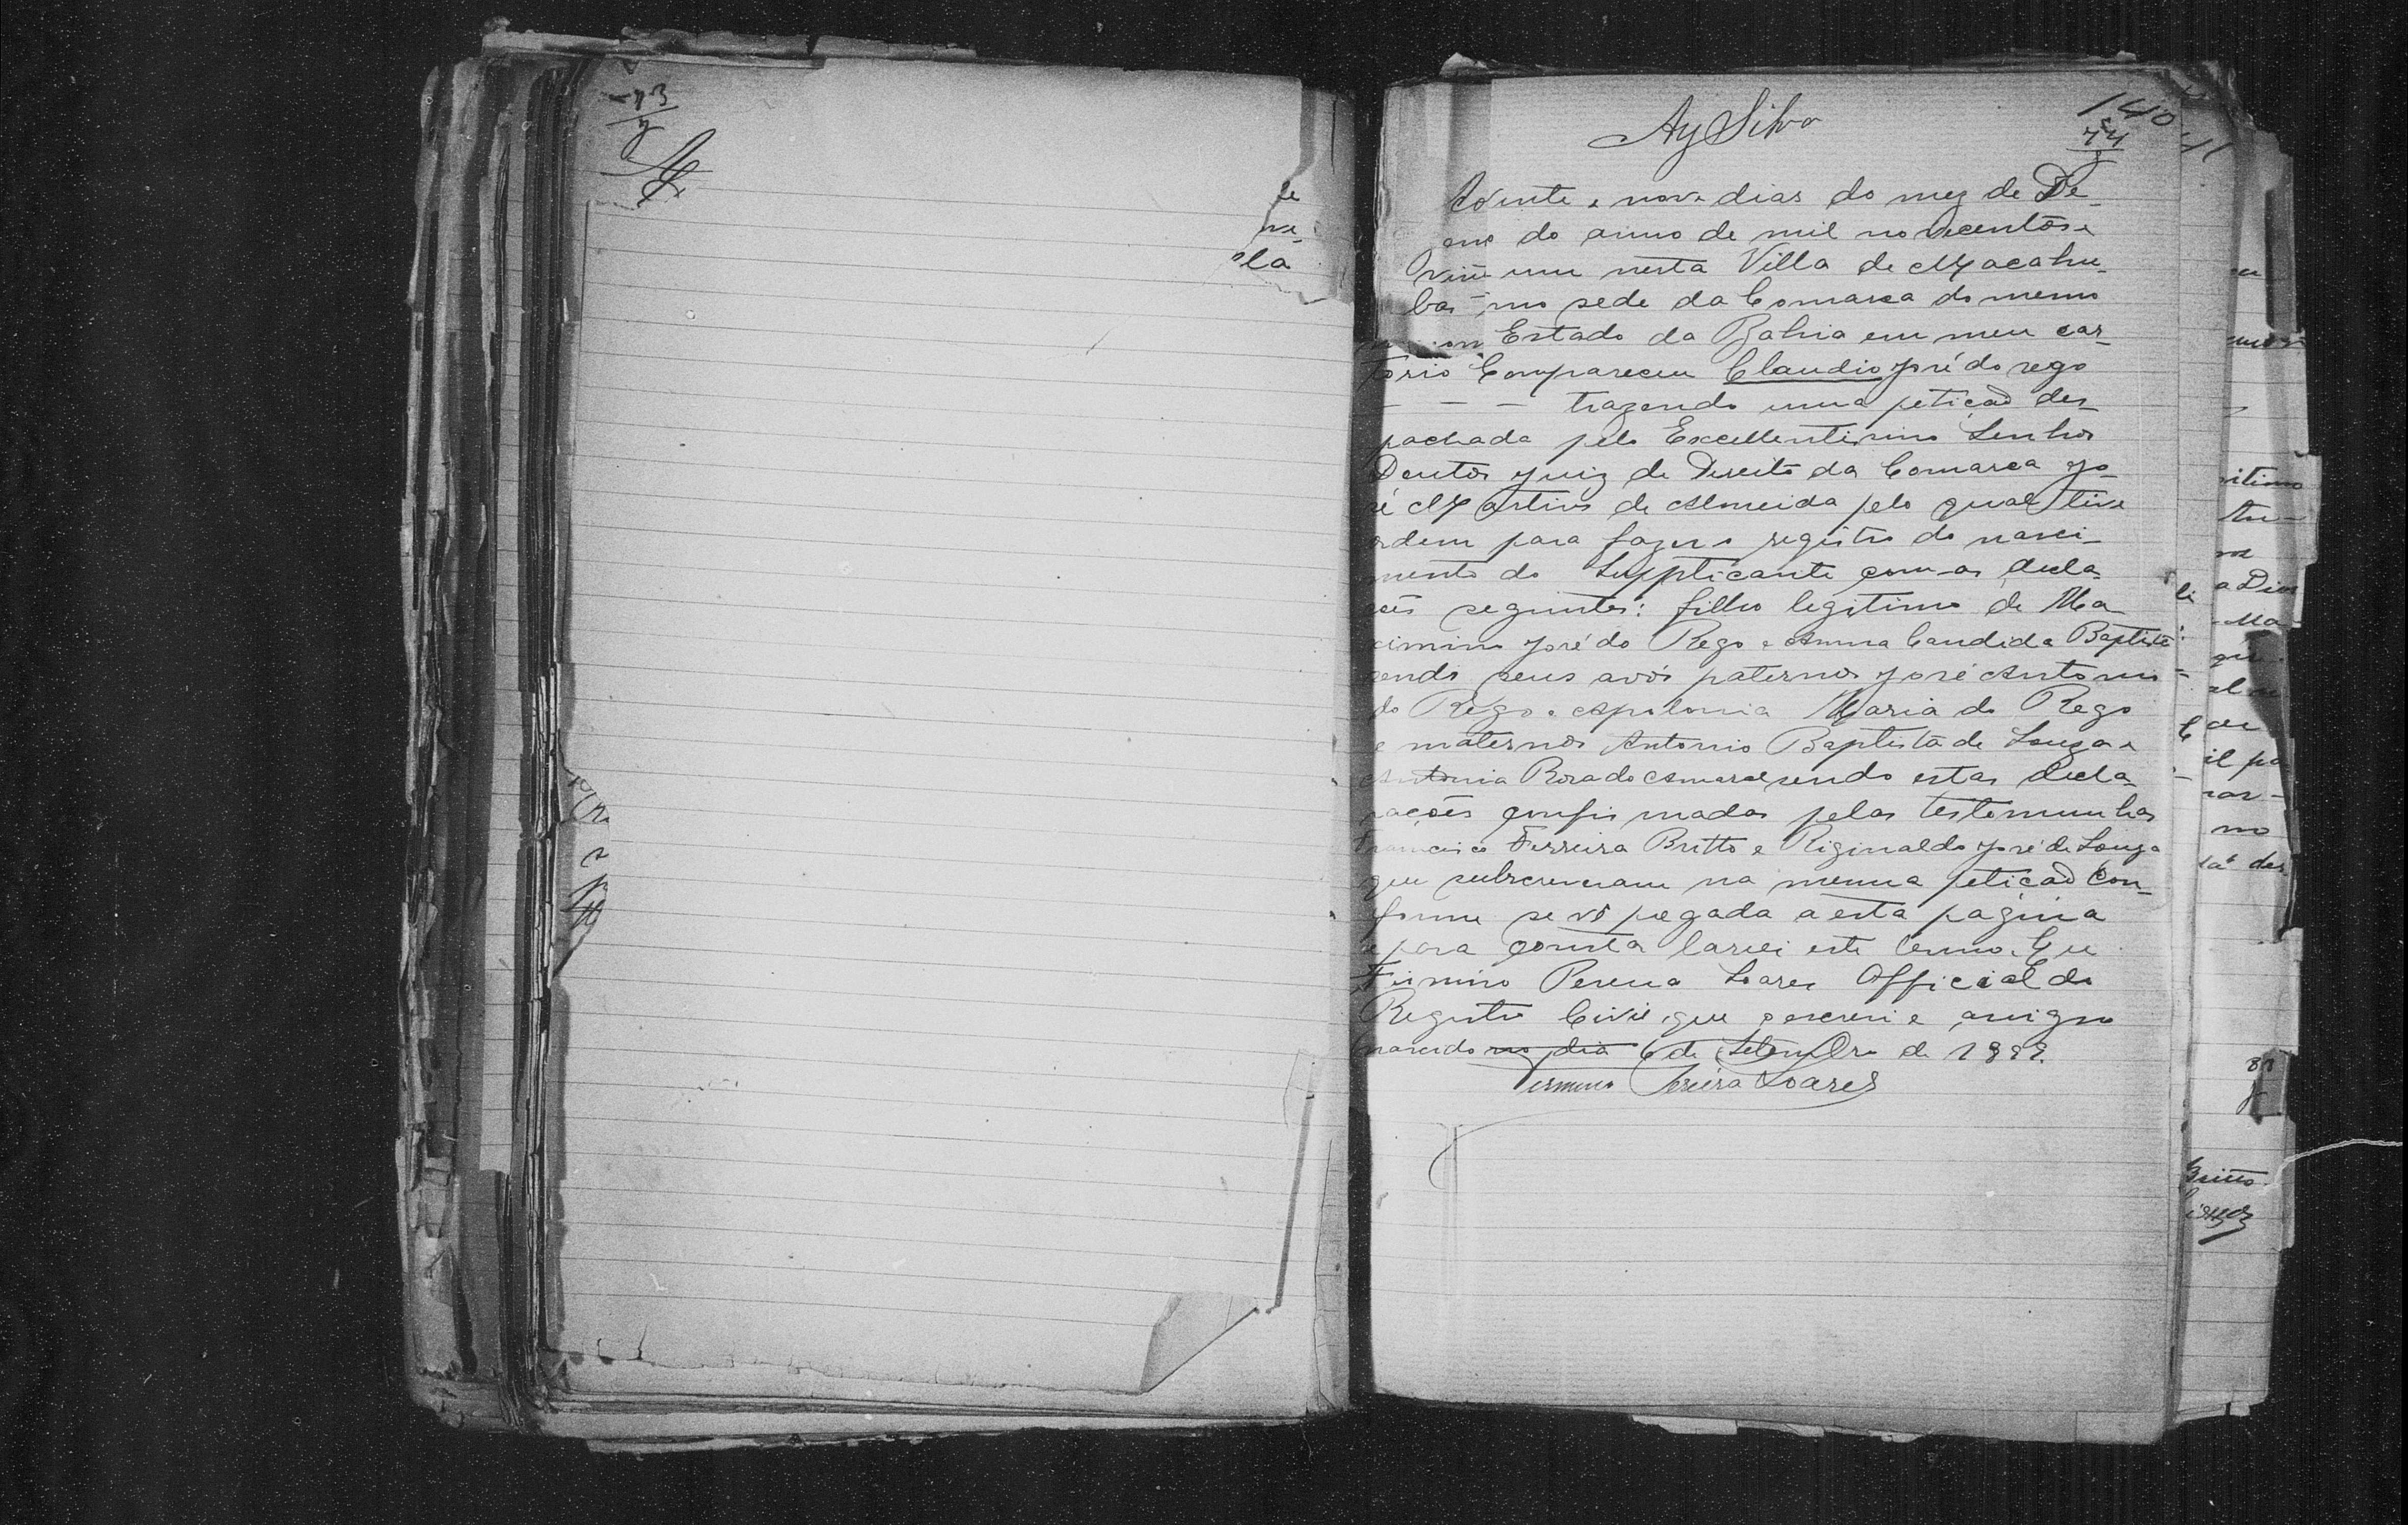 73
la
Ay Silva
140
74
Vinte e nove dias do mez de De
do anno de mil novecentos e
um nesta Villa de Macahu
bas sede da Comarca do mesmo
Estado da Bahia em meu car
torio Compareceu Claudio José do rego
trazendo uma petição des
pachada pelo Excellentissimo Senhor
Doutor Juiz de Direito da Comarca Jo
sé Martins de Almeida pelo qual tive
ordem para fazer o registro do nasci
mento do Supplicante com as decla
ções seguintes: filho legitimo de Ma
ximino José do Rego e Anna Candida Baptista
sendo seus avós paternos José Antonio
do Rego e Apolonia Maria do Rego
e maternos Antonio Baptista de Souza e
Antonia Rosa do Amaral sendo estas decla
rações confirmadas pelas testemunhas
Francisco Ferreira Britto e Riginaldo José de Souza
que subscreveram na mesma petição con
forme se vê pregada a esta pagina
e para consta larvei este termo. Eu
Firmino Pereira Soares Official do
Registro Civil que escrevi e assigno
nascido no dia 6 de Setembro de 189
Firmino Pereira Soares